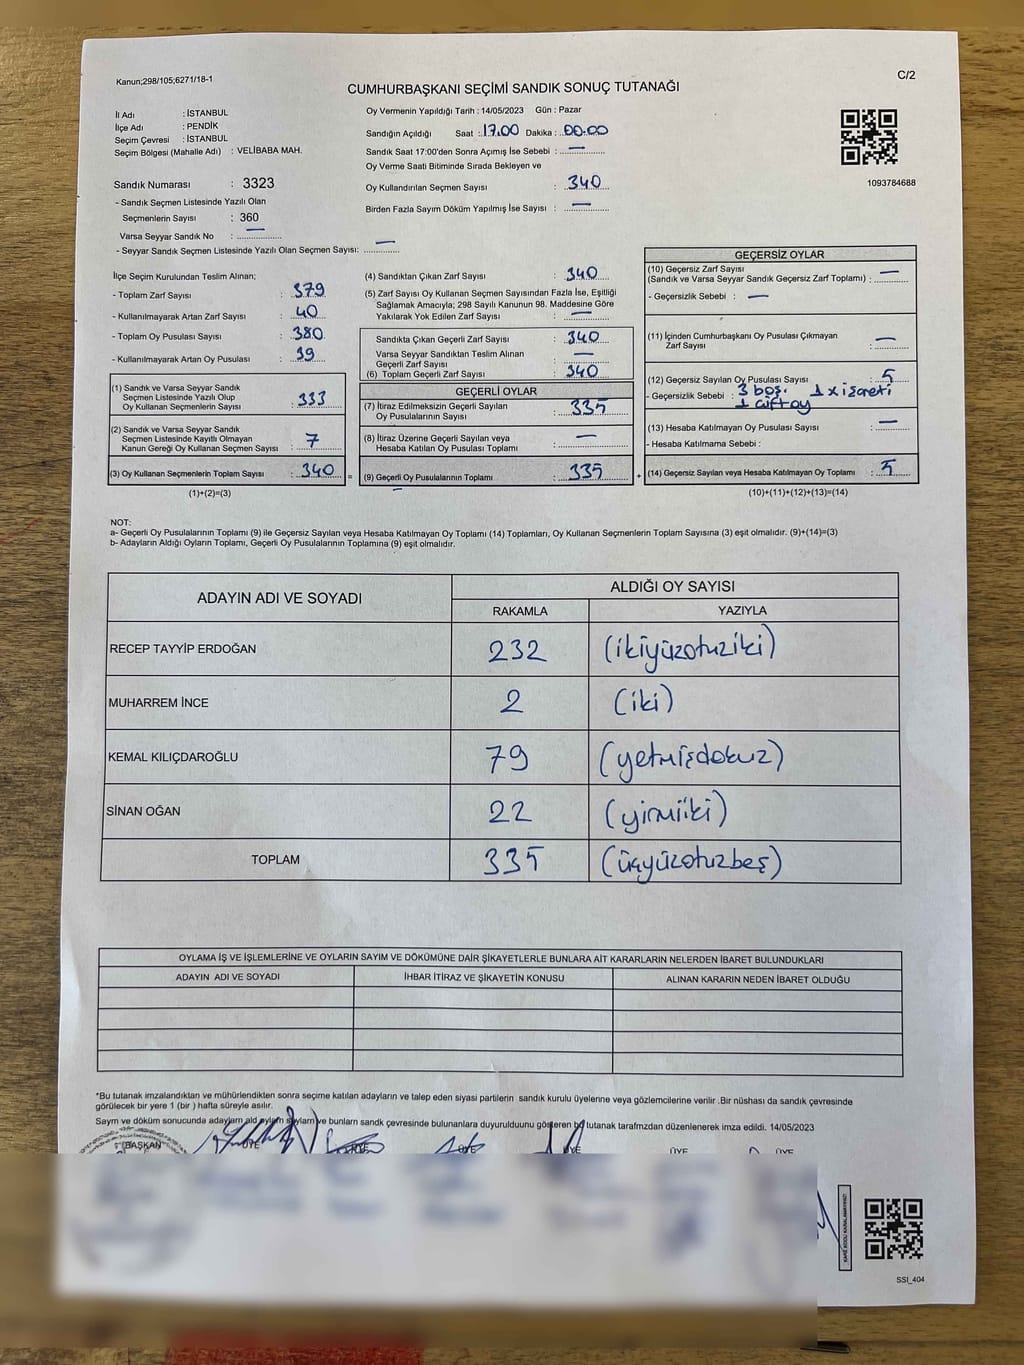 Kanun;298/105;6271/18-1
C/2
CUMHURBAŞKANI SEÇİMİ SANDIK SONUÇ TUTANAĞI
İl Adı : İSTANBUL
İlçe Adı : PENDİK
Seçim Çevresi : İSTANBUL
Seçim Bölgesi (Mahalle Adı) : VELİBABA MAH.
Sandık Numarası : 3323
- Sandık Seçmen Listesinde Yazılı Olan
Seçmenlerin Sayısı : 360
Varsa Seyyar Sandık No : —
- Seyyar Sandık Seçmen Listesinde Yazılı Olan Seçmen Sayısı: —
Oy Vermenin Yapıldığı Tarih : 14/05/2023 Gün : Pazar
Sandığın Açıldığı Saat : 17.00 Dakika : 00.00
Sandık Saat 17:00'den Sonra Açımış İse Sebebi : —
Oy Verme Saati Bitiminde Sırada Bekleyen ve
Oy Kullandırılan Seçmen Sayısı : 340
Birden Fazla Sayım Döküm Yapılmış İse Sayısı : —
1093784688
İlçe Seçim Kurulundan Teslim Alınan;
- Toplam Zarf Sayısı : 379
- Kullanılmayarak Artan Zarf Sayısı : 40
- Toplam Oy Pusulası : 380
- Kullanılmayarak Artan Oy Pusulası : 39
(1) Sandık ve Varsa Seyyar Sandık
Seçmen Listesinde Yazılı Olup
Oy Kullanan Seçmenlerin Sayısı : 333
(2) Sandık ve Varsa Seyyar Sandık
Seçmen Listesinde Kayıtlı Olmayan
Kanun Gereği Oy Kullanan Seçmen Sayısı : 7
(3) Oy Kullanan Seçmenlerin Toplam Sayısı : 340 =
(1)+(2)=(3)
(4) Sandıktan Çıkan Zarf Sayısı : 340
(5) Zarf Sayısı Oy Kullanan Seçmen Sayısından Fazla İse, Eşitliği
Sağlamak Amacıyla; 298 Sayılı Kanunun 98. Maddesine Göre
Yakılarak Yok Edilen Zarf Sayısı : —
Sandıkta Çıkan Geçerli Zarf Sayısı : 340
Varsa Seyyar Sandıktan Teslim Alınan
Geçerli Zarf Sayısı : —
(6) Toplam Geçerli Zarf Sayısı : 340
GEÇERLİ OYLAR
(7) İtiraz Edilmeksizin Geçerli Sayılan
Oy Pusulalarının Sayısı : 335
(8) İtiraz Üzerine Geçerli Sayılan veya
Hesaba Katılan Oy Pusulası Toplamı : —
(9) Geçerli Oy Pusulalarının Toplamı : 335 +
GEÇERSİZ OYLAR
(10) Geçersiz Zarf Sayısı
(Sandık ve Varsa Seyyar Sandık Geçersiz Zarf Toplamı) : —
- Geçersizlik Sebebi : —
(11) İçinden Cumhurbaşkanı Oy Pusulası Çıkmayan
Zarf Sayısı : —
(12) Geçersiz Sayılan Oy Pusulası Sayısı : 5
- Geçersizlik Sebebi : 3 boş. 1 x işareti
1 çift oy
(13) Hesaba Katılmayan Oy Pusulası Sayısı : —
- Hesaba Katılmama Sebebi :
(14) Geçersiz Sayılan veya Hesaba Katılmayan Oy Toplamı : 5
(10)+(11)+(12)+(13)=(14)
NOT:
a- Geçerli Oy Pusulalarının Toplamı (9) ile Geçersiz Sayılan veya Hesaba Katılmayan Oy Toplamı (14) Toplamları, Oy Kullanan Seçmenlerin Toplam Sayısına (3) eşit olmalıdır. (9)+(14)=(3)
b- Adayların Aldığı Oyların Toplamı, Geçerli Oy Pusulalarının Toplamına (9) eşit olmalıdır.
ADAYIN ADI VE SOYADI
ALDIĞI OY SAYISI
RAKAMLA YAZIYLA
RECEP TAYYİP ERDOĞAN 232 (ikiyüzotuziki)
MUHARREM İNCE 2 (iki)
KEMAL KILIÇDAROĞLU 79 (yetmişdokuz)
SİNAN OĞAN 22 (yirmiiki)
TOPLAM 335 (üçyüzotuzbeş)
OYLAMA İŞ VE İŞLEMLERİNE VE OYLARIN SAYIM VE DÖKÜMÜNE DAİR ŞİKAYETLERLE BUNLARA AİT KARARLARIN NELERDEN İBARET BULUNDUKLARI
ADAYIN ADI VE SOYADI İHBAR İTİRAZ VE ŞİKAYETİN KONUSU ALINAN KARARIN NEDEN İBARET OLDUĞU
*Bu tutanak imzalandıktan ve mühürlendikten sonra seçime katılan adayların ve talep eden siyasi partilerin sandık kurulu üyelerine veya gözlemcilerine verilir .Bir nüshası da sandık çevresinde
görülecek bir yere 1 (bir ) hafta süreyle asılır.
Sayım ve döküm sonucunda adayların ve bunların sandık çevresinde bulunanlara duyurulduunu gösteren bu tutanak tarafımzdan düzenlenerek imza edildi. 14/05/2023
BAŞKAN ÜYE ÜYE ÜYE ÜYE ÜYE ÜYE
SSI_404